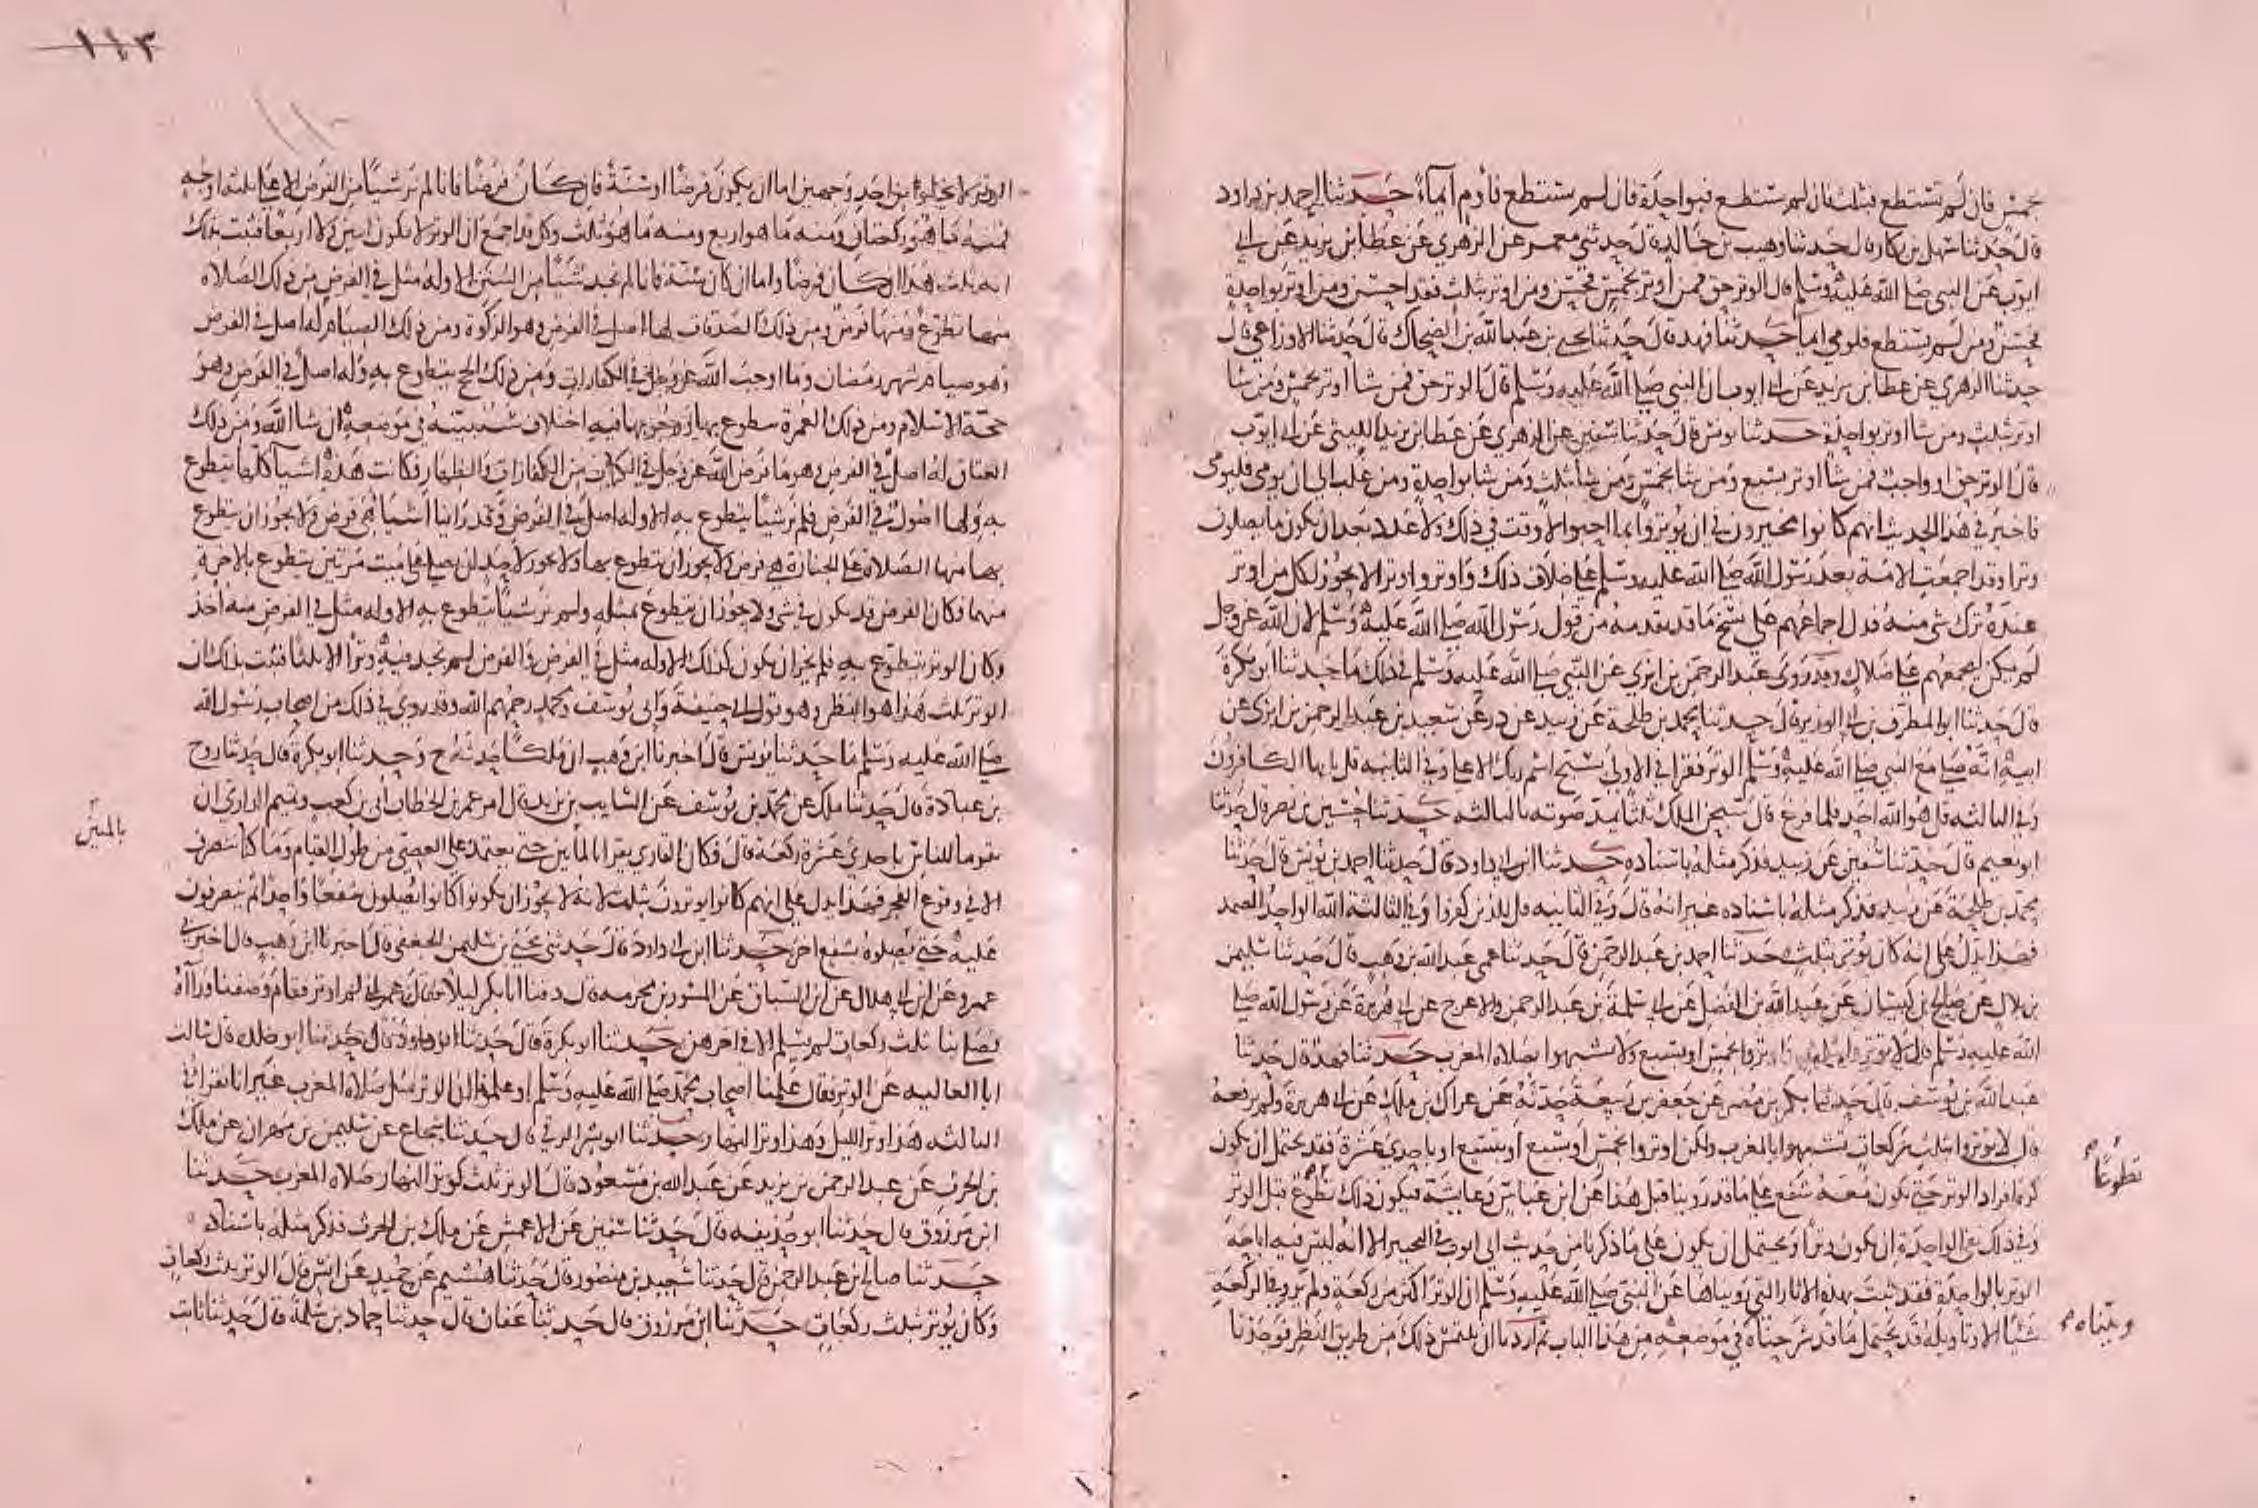 بخمس فان لم تستطع فبثلث فان لم تستطع فبواحدة فان لم تستطع فأوم ايماءً حدثنا ابراهيم بن داود
قال حدثنا سهل بن بكار قال حدثنا وهيب بن خالد قال حدثني معمر عن الزهري عن عطا بن يزيد عن ابي
ايوب عن النبي صلى الله عليه وسلم قال الوتر حق فمن اوتر بخمس فحسن ومن اوتر بثلث فقد احسن ومن اوتر بواحدة
فحسن ومن لم يستطع فليومى ايما حدثنا فهد قال حدثنا يحيى بن عبد الله بن الضحاك قال حدثنا الاوزاعي قال
حدثنا الزهري عن عطا بن يزيد عن ابي ايوب ان النبي صلى الله عليه وسلم قال الوتر حق فمن شا اوتر بخمس ومن شا
اوتر بثلث ومن شا اوتر بواحدة حدثنا يونس قال حدثنا سفين عن الزهري عن عطا بن يزيد الليثي عن ابي ايوب
قال الوتر حق او واجب فمن شا اوتر بسبع ومن شا بخمس ومن شا بثلث ومن شا بواحدة ومن غلب الى ان يومى فليومى
فاخبر في هذا الحديث انهم كانوا مخيرون في ان يوتروا بما احبوا لا وقت في ذلك ولا عدد بعد ان يكون ما يصلون
وترا وقد اجمعت الامة بعد رسول الله صلى الله عليه وسلم على خلاف ذلك واوتروا وترا لا يجوز لكل من اوتر
عنده ترك شي منه فدل اجماعهم على نسخ ما قد تقدمه من قول رسول الله صلى الله عليه وسلم لان الله عز وجل
لم يكن ليجمعهم على ضلال وقد روى عبد الرحمن بن ابزى عن النبي صلى الله عليه وسلم في ذلك ما حدثنا ابو بكرة
قال حدثنا ابو المطرف بن ابي الوزير قال حدثنا محمد بن طلحة عن زبيد عن ذر عن سعيد بن عبد الرحمن بن ابزى عن
ابيه انه صلى مع النبي صلى الله عليه وسلم الوتر فقرا في الاولى بسبح اسم ربك الاعلى وفي الثانيه قل يايها الكافرون
وفي الثالثه قل هو الله احد فلما فرغ قال سبحن الملك ثلثا يمد صوته بالثالثه حدثنا حسين بن نصر قال حدثنا
ابو نعيم قال حدثنا سفين عن زبيد فذكر مثله باسناده حدثنا ابن ابي داود قال حدثنا احمد بن يونس قال حدثنا
محمد بن طلحة عن زبيد فذكر مثله باسناده غير انه قال وفي الثانيه قل للذين كفروا وفي الثالثة الله الواحد الصمد
فهذا يدل على انه كان يوتر بثلث حدثنا احمد بن عبد الرحمن قال حدثنا عمي عبد الله بن وهب قال حدثنا سليمن
بن بلال عن صالح بن كيسان عن عبد الله بن الفضل عن ابي سلمة بن عبد الرحمن والاعرج عن ابي هريرة عن رسول الله صلى
الله عليه وسلم قال لا توتروا بثلث واوتروا بخمس او بسبع ولا تشبهوا بصلاة المغرب حدثنا فهد قال حدثنا
عبد الله بن يوسف قال حدثنا بكر بن مضر عن جعفر بن ربيعة حدثه عن عراك بن ملك عن ابي هريرة ولم يرفعه
قال لا توتروا بثلث ركعات تشبهوا بالمغرب ولكن اوتروا بخمس او بسبع او بتسع او باحدى عشرة فقد يحتمل ان يكون
كره افراد الوتر حتى يكون معه شفع على ما قد روينا قبل هذا عن ابن عباس وعايشة فيكون ذلك تطوع قبل الوتر
تطوعًا
وفي ذلك نفي الواحدة ان يكون وترا ويحتمل ان يكون على ما ذكرنا من حديث ابي ايوب في التخيير الا انه ليس فيه اباحة
الوتر بالواحدة فقد ثبت بهذه الاثار التي رويناها عن النبي صلى الله عليه وسلم ان الوتر اكثر من ركعة ولم يرو في الركعة
شيئا الا وتاويله قد يحتمل ما قد شرحناه في موضعه من هذا الباب ثم اردنا ان نلتمس ذلك من طريق النظر فوجدنا
وبيناه
١١٣
الوتر لا يخلوا من احد وجهين اما ان يكون فرضا او سنة فان كان فرضا فانا لم نر شيا من الفرض الا على ثلثه اوجه
فمنه ما هو ركعتان ومنه ما هو اربع ومنه ما هو ثلث وكل قد اجمع ان الوتر لا يكون اثنين ولا اربعا فثبت بذلك
انه ثلث هذا اذا كان فرضا واما ان كان سنة فانا لم نجد شيا من السنن الا وله مثل في الفرض من ذلك الصلاة
منها تطوع ومنها فرض ومن ذلك الصدقات لها اصل في الفرض وهو الزكوة ومن ذلك الصيام له اصل في الفرض
وهو صيام شهر رمضان وما اوجب الله عز وجل في الكفارات ومن ذلك الحج يتطوع به وله اصل في الفرض وهو
حجة الاسلام ومن ذلك العمرة يتطوع بها ووجوبها فيه اختلاف سنبينه في موضعه ان شا الله ومن ذلك
العتاق له اصل في الفرض وهو ما فرض الله عز وجل في الكتاب من الكفارات والظهار فكانت هذه اشيا كلها يتطوع
به ولها اصول في الفرض فلم نر شيا يتطوع به الا وله اصل في الفرض وقد راينا اشيا هي فرض ولا يجوز ان يتطوع
بها منها الصلاة على الجنازة هي فرض ولا يجوز ان يتطوع بها ولا يجوز لاحد ان يصلي على ميت مرتين يتطوع بالاخرة
منهما فكان الفرض قد يكون في شي ولا يجوز ان يتطوع بمثله ولم نر شيا يتطوع به الا وله مثل في الفرض منه اخذ
وكان الوتر يتطوع به فلم يجز ان يكون كذلك الا وله مثل في الفرض والفرض لم نجد فيه وترا الا ثلثا فثبت بذلك ان
الوتر ثلث هذا هو النظر وهو قول ابي حنيفة وابي يوسف ومحمد رحمهم الله وقد روي في ذلك من اصحاب رسول الله
صلى الله عليه وسلم ما حدثنا يونس قال اخبرنا ابن وهب ان ملكا حدثه ح وحدثنا ابو بكرة قال حدثنا روح
بن عبادة قال حدثنا ملك عن محمد بن يوسف عن السايب بن يزيد قال امر عمر بن الخطاب ابي بن كعب وتميم الداري ان
يقوما للناس باحدى عشرة ركعة قال فكان القاري يقرا بالمأبين حتى يعتمد على العصي من طول القيام وما كنا ننصرف
بالمئين
الا في فروع الفجر فهذا يدل على انهم كانوا يوترون بثلث لانه لا يجوز ان يكونوا كانوا يصلون شفعا واحدا ثم ينصرفون
عليه حتى يصلوه بشفع اخر حدثنا ابن ابي داود قال حدثني يحيى بن سليمن الجعفي قال اخبرنا ابن وهب قال اخبرني
عمرو عن ابن ابي هلال عن ابن السباق عن المسور بن مخرمه قال دفنا ابا بكر ليلا فقال عمر اني لم اوتر فقام وصففنا وراآه
فصلى بنا ثلث ركعات لم يسلم الا في اخرهن حدثنا ابو بكرة قال حدثنا ابو داود قال حدثنا ابو خلده قال سالت
ابا العاليه عن الوتر فقال علمنا اصحاب محمد صلى الله عليه وسلم او علمونا ان الوتر مثل صلاة المغرب غير انا نقرا في
الثالثه هذا وتر الليل وهذا وتر النهار حدثنا ابو بشر الرقي قال حدثنا شجاع عن سليمن بن مهران عن ملك
بن الحرث عن عبد الرحمن بن يزيد عن عبد الله بن مسعود قال الوتر ثلث كوتر النهار صلاة المغرب حدثنا
ابن مرزوق قال حدثنا ابو حذيفه قال حدثنا سفين عن الاعمش عن ملك بن الحرث فذكر مثله باسناده
حدثنا صالح بن عبد الرحمن قال حدثنا سعيد بن منصور قال حدثنا هشيم عن حميد عن انس قال الوتر ثلث ركعات
وكان يوتر بثلث ركعات حدثنا ابن مرزوق قال حدثنا عفان قال حدثنا حماد بن سلمة قال حدثنا ثابت